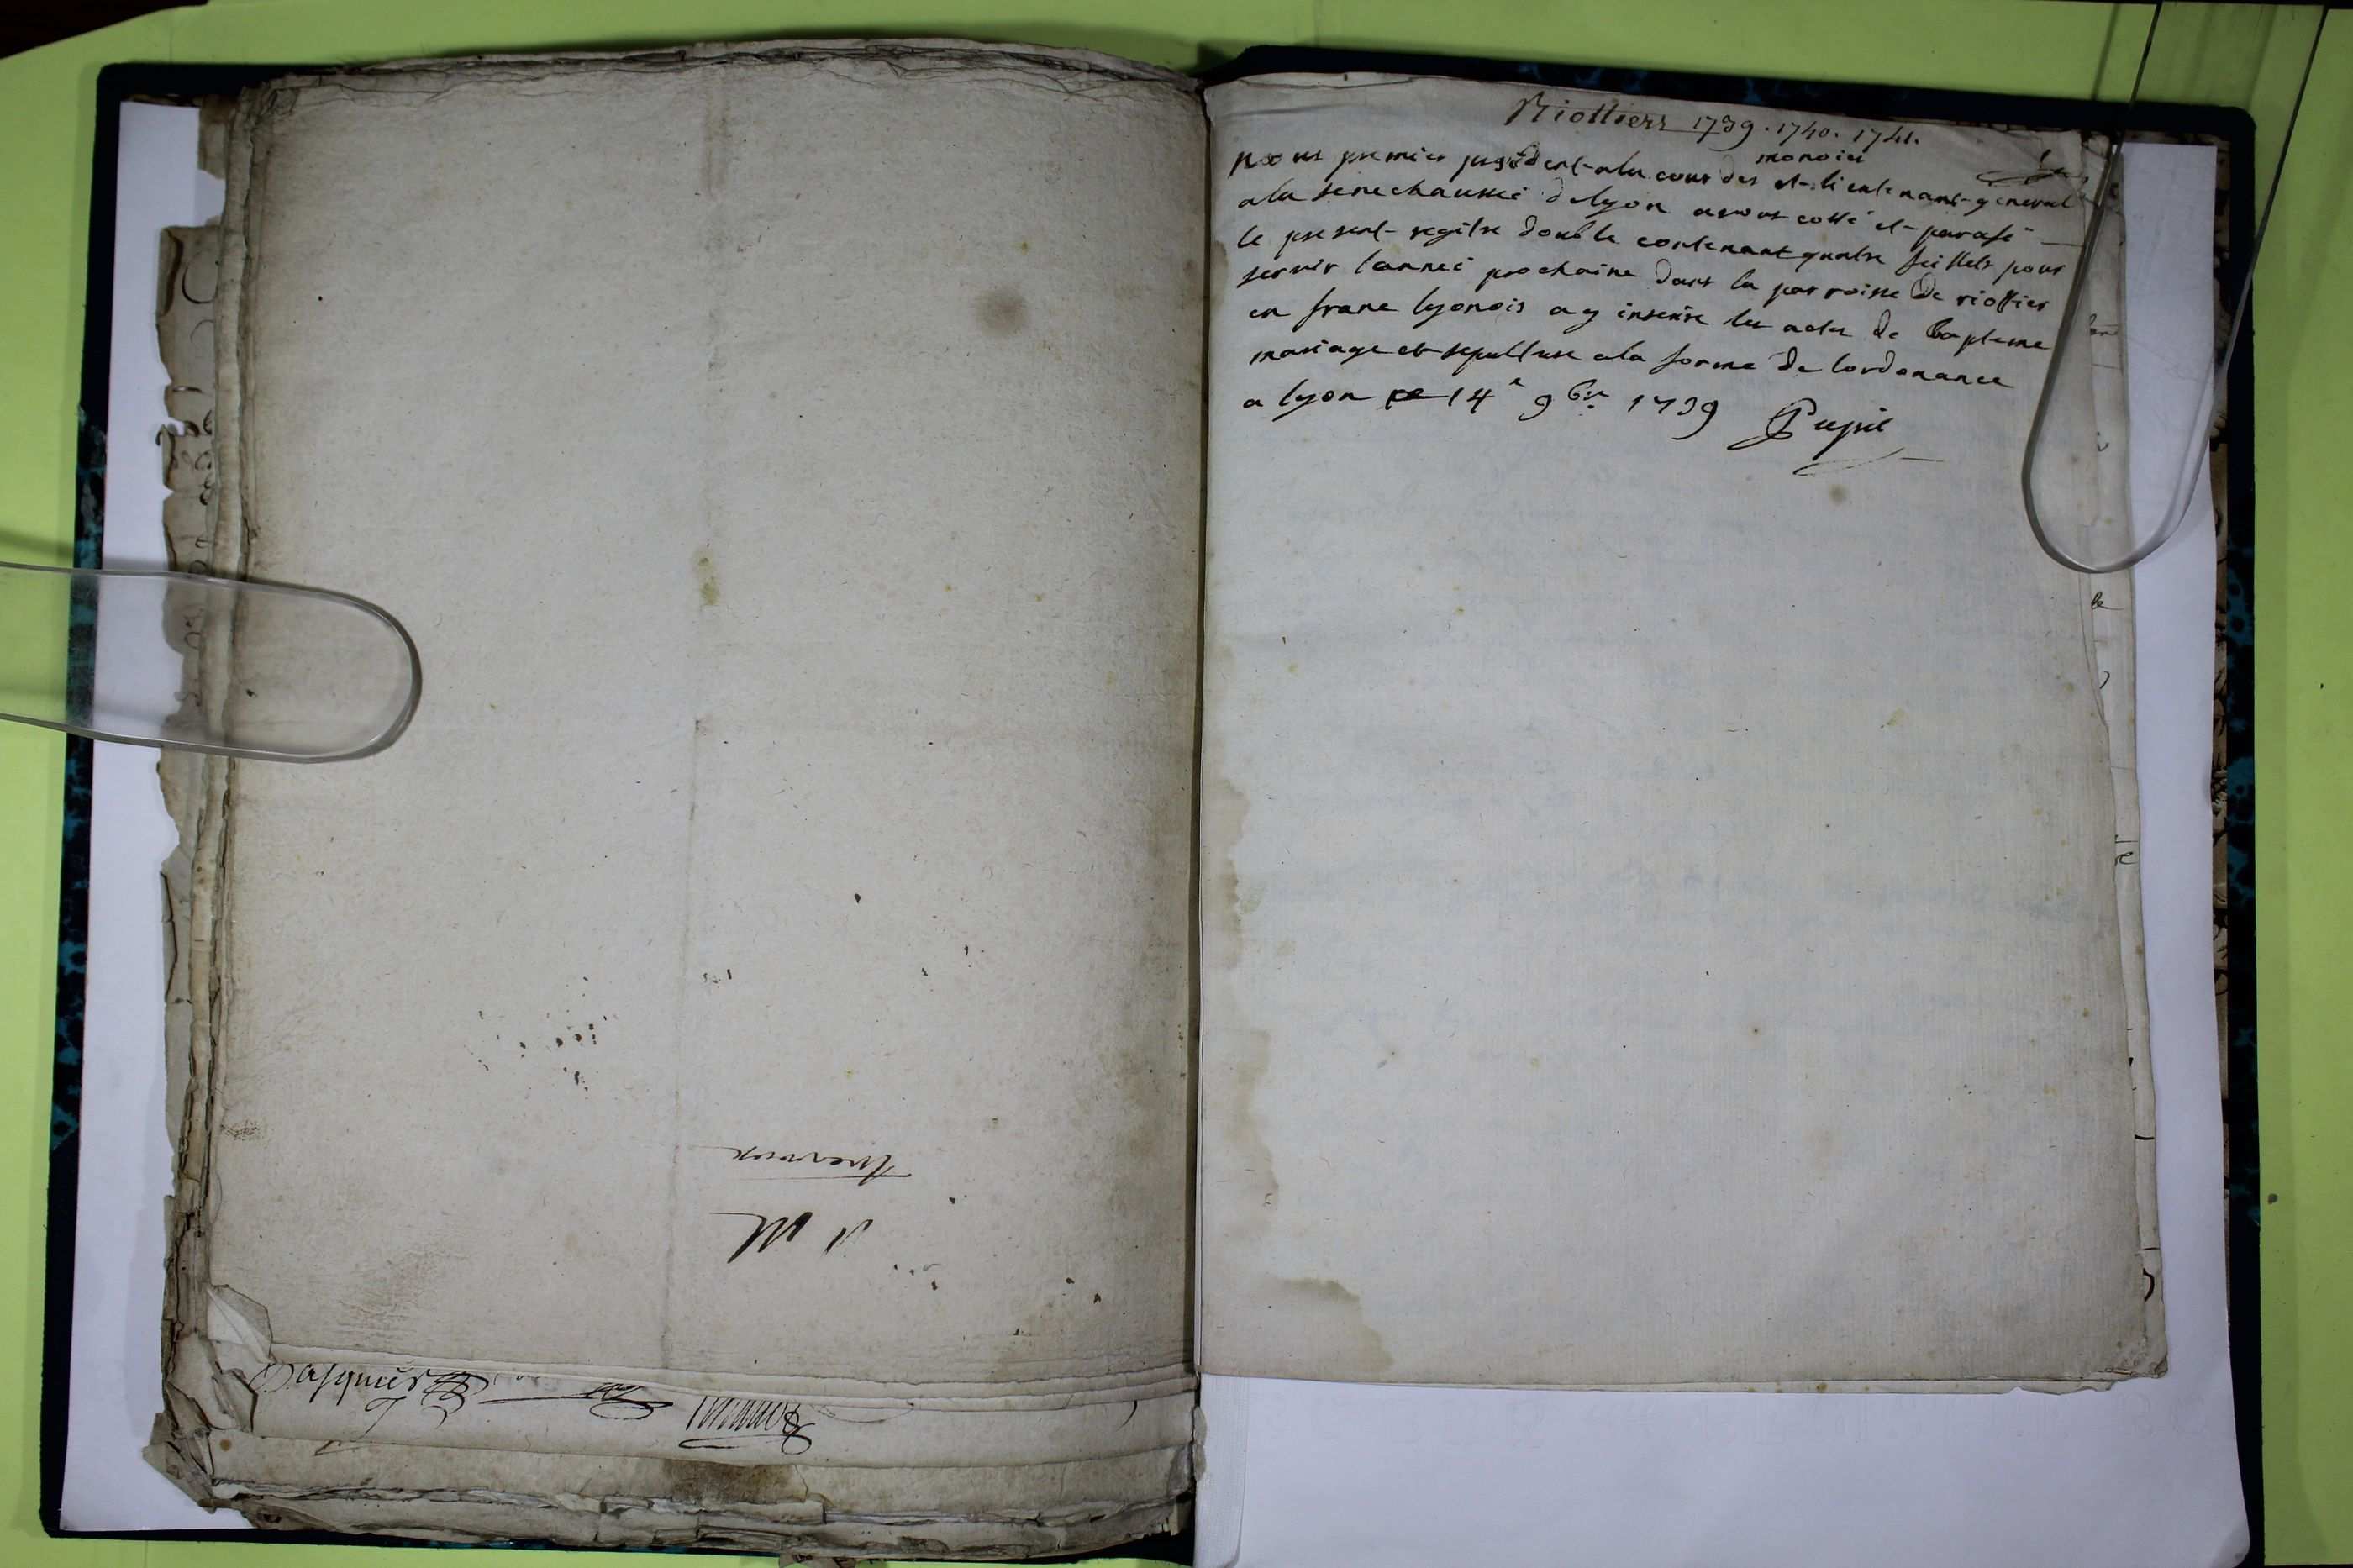 trevoux
Pasquier
Riottiers 1739. 1740. 1741.
nous premier president a la cour des monoies et lieutenant general
a la senechaussée de lyon avons cotté et parafé
le present regitre double contenant quatre feillets pour
servir l'année prochaine dans la parroisse de riottier
en franc lyonois a y inserire les actes de bapteme
mariage et sepulture a la forme de l'ordonance
a lyon ce 14e 9bre 1739 Pupil